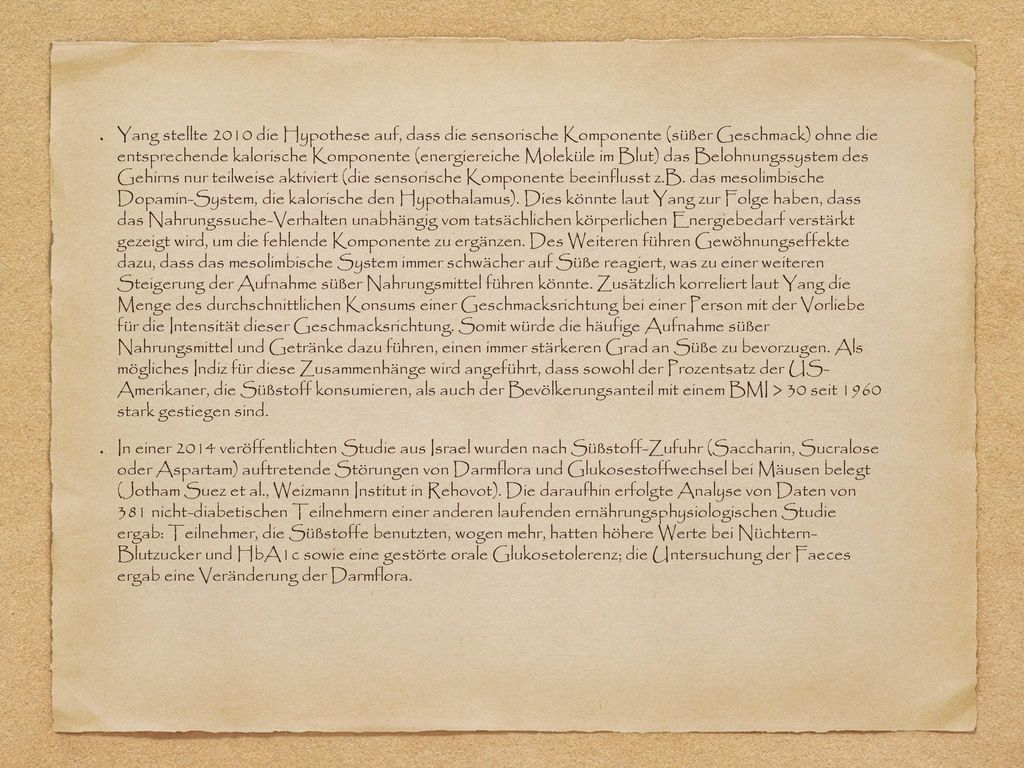 • Yang stellte 2010 die Hypothese auf, dass die sensorische Komponente (süßer Geschmack) ohne die
entsprechende kalorische Komponente (energiereiche Moleküle im Blut) das Belohnungssystem des
Gehirns nur teilweise aktiviert (die sensorische Komponente beeinflusst z.B. das mesolimbische
Dopamin-System, die kalorische den Hypothalamus). Dies könnte laut Yang zur Folge haben, dass
das Nahrungssuche-Verhalten unabhängig vom tatsächlichen körperlichen Energiebedarf verstärkt
gezeigt wird, um die fehlende Komponente zu ergänzen. Des Weiteren führen Gewöhnungseffekte
dazu, dass das mesolimbische System immer schwächer auf Süße reagiert, was zu einer weiteren
Steigerung der Aufnahme süßer Nahrungsmittel führen könnte. Zusätzlich korreliert laut Yang die
Menge des durchschnittlichen Konsums einer Geschmacksrichtung bei einer Person mit der Vorliebe
für die Intensität dieser Geschmacksrichtung. Somit würde die häufige Aufnahme süßer
Nahrungsmittel und Getränke dazu führen, einen immer stärkeren Grad an Süße zu bevorzugen. Als
mögliches Indiz für diese Zusammenhänge wird angeführt, dass sowohl der Prozentsatz der US-
Amerikaner, die Süßstoff konsumieren, als auch der Bevölkerungsanteil mit einem BMI > 30 seit 1960
stark gestiegen sind.
• In einer 2014 veröffentlichten Studie aus Israel wurden nach Süßstoff-Zufuhr (Saccharin, Sucralose
oder Aspartam) auftretende Störungen von Darmflora und Glukosestoffwechsel bei Mäusen belegt
(Jotham Suez et al., Weizmann Institut in Rehovot). Die daraufhin erfolgte Analyse von Daten von
381 nicht-diabetischen Teilnehmern einer anderen laufenden ernährungsphysiologischen Studie
ergab: Teilnehmer, die Süßstoffe benutzten, wogen mehr, hatten höhere Werte bei Nüchtern-
Blutzucker und HbA1c sowie eine gestörte orale Glukosetolerenz; die Untersuchung der Faeces
ergab eine Veränderung der Darmflora.